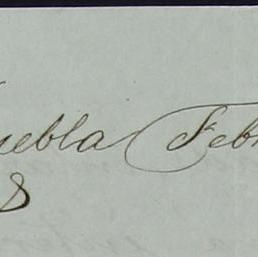 uebla Feb
8